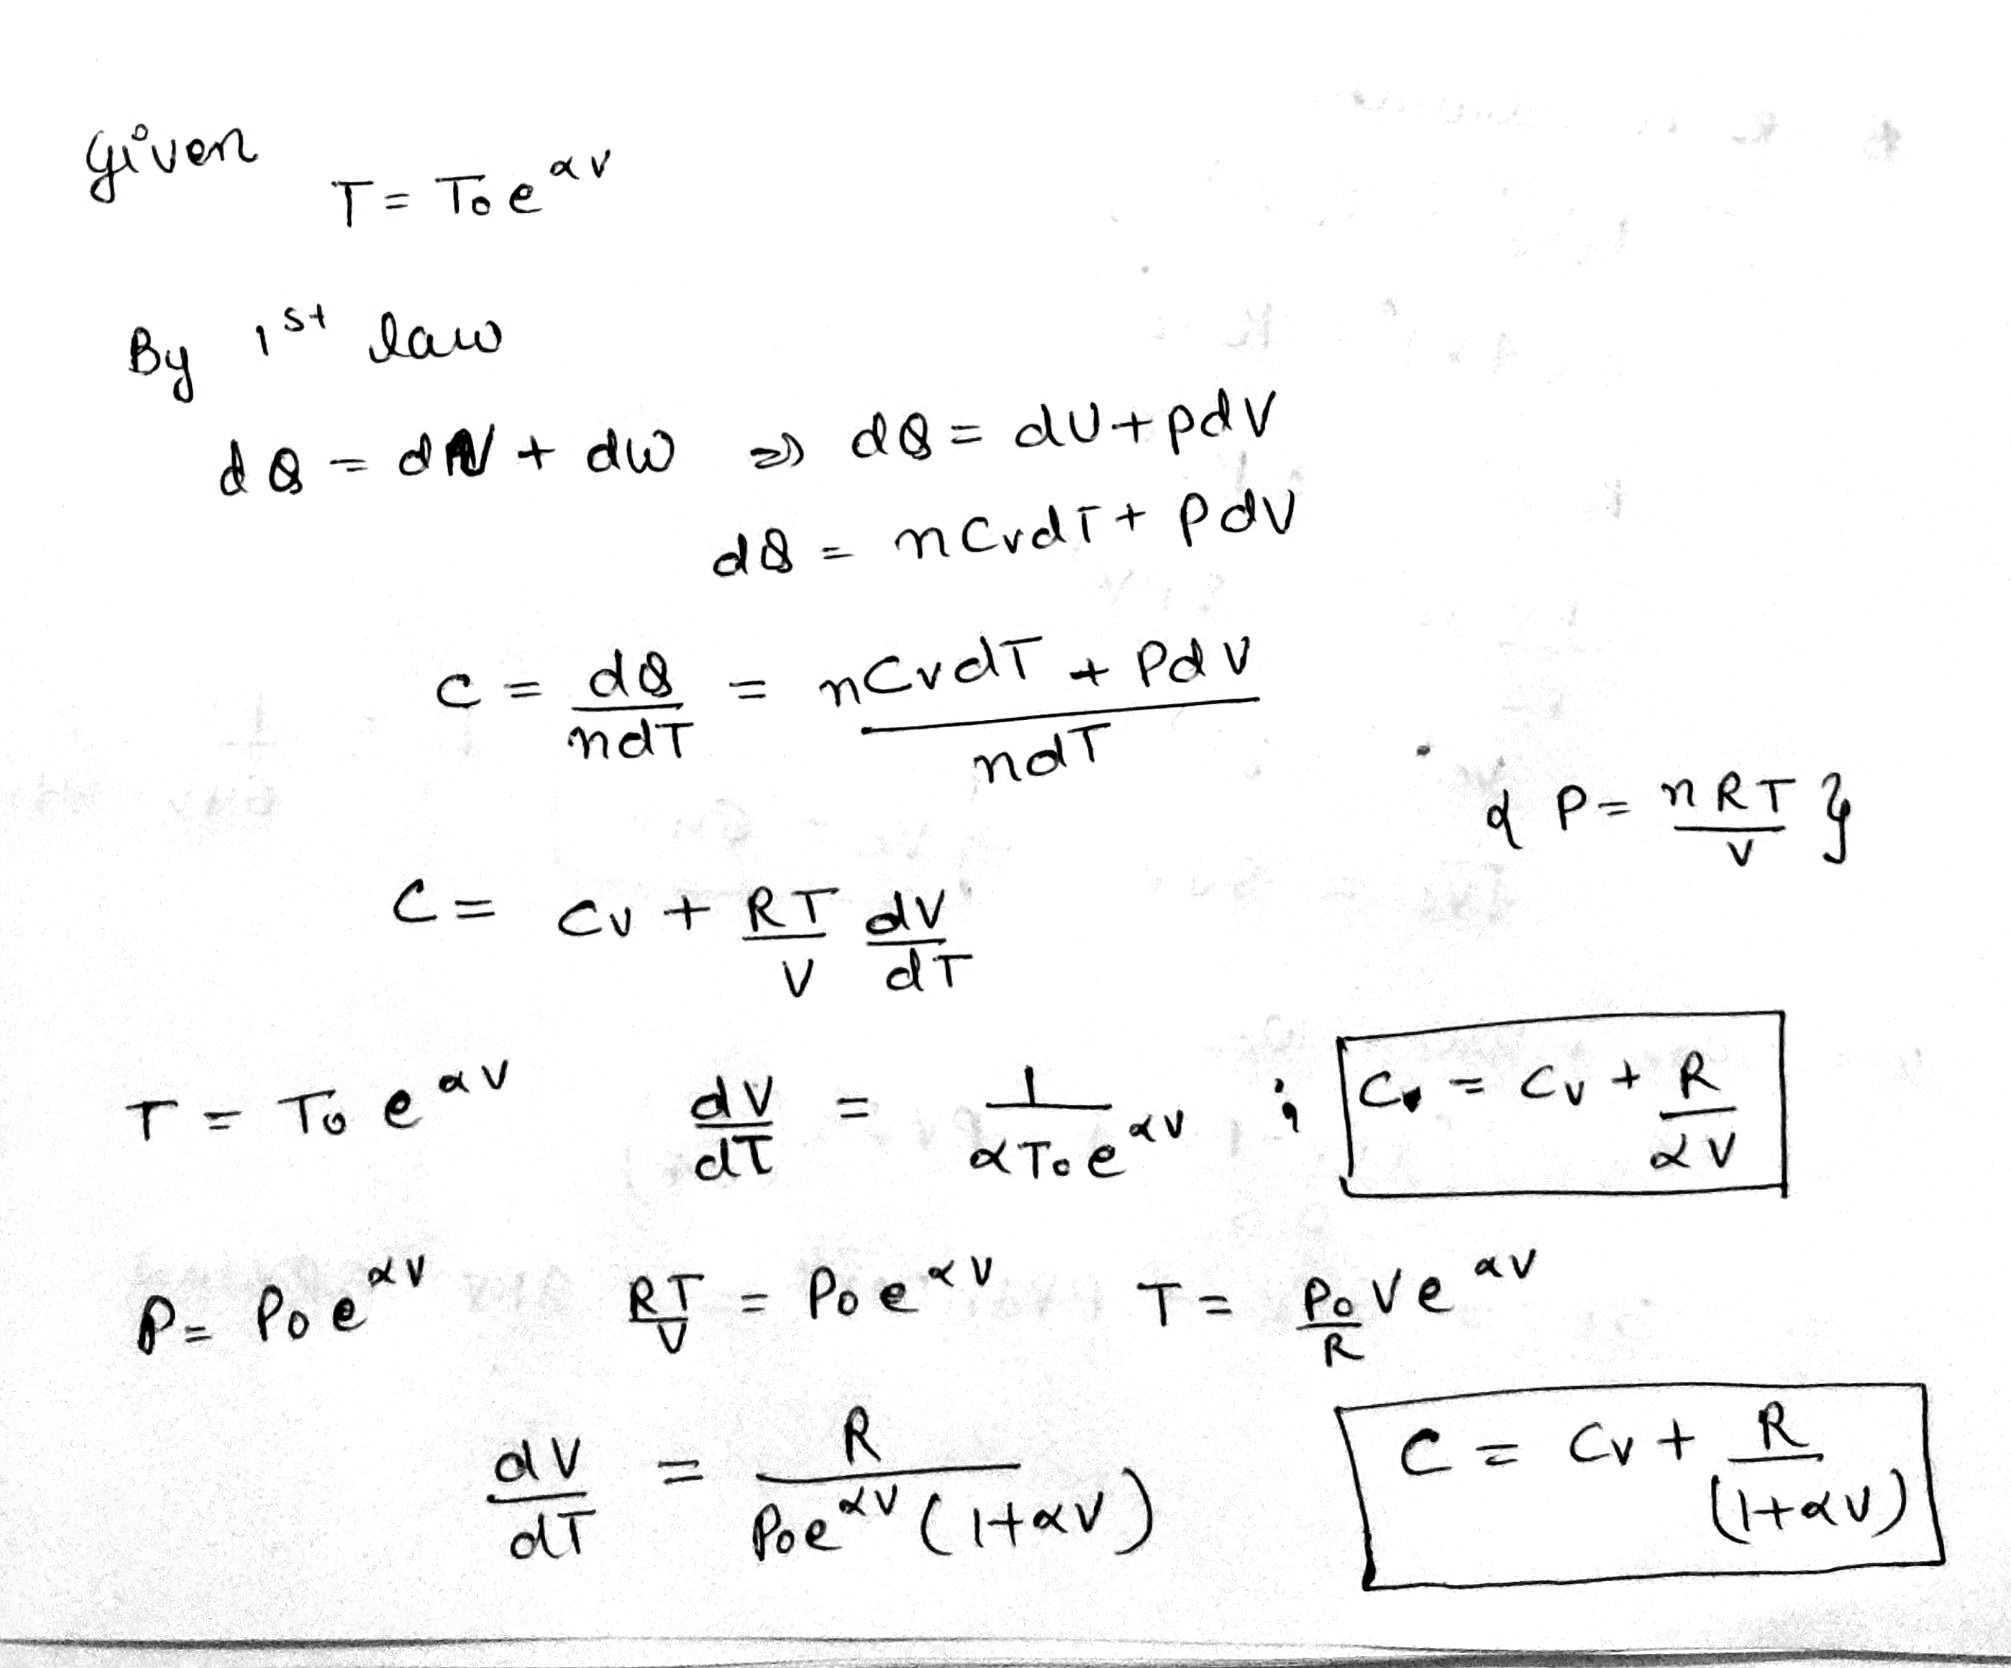 Given
T = T₀ e^αV
By 1st law
dQ = dU + dW ⇒ dQ = dU + pdV
dQ = nCvdT + PdV
C = dQ/ndT = (nCvdT + PdV)/ndT
{ P = nRT/V }
C = Cv + RT/V dV/dT
T = T₀ e^αV dV/dT = 1/(αT₀e^αV) ; C = Cv + R/αV
P = P₀e^αV RT/V = P₀e^αV T = P₀/R Ve^αV
dV/dT = R/(P₀e^αV(1+αV)) C = Cv + R/(1+αV)